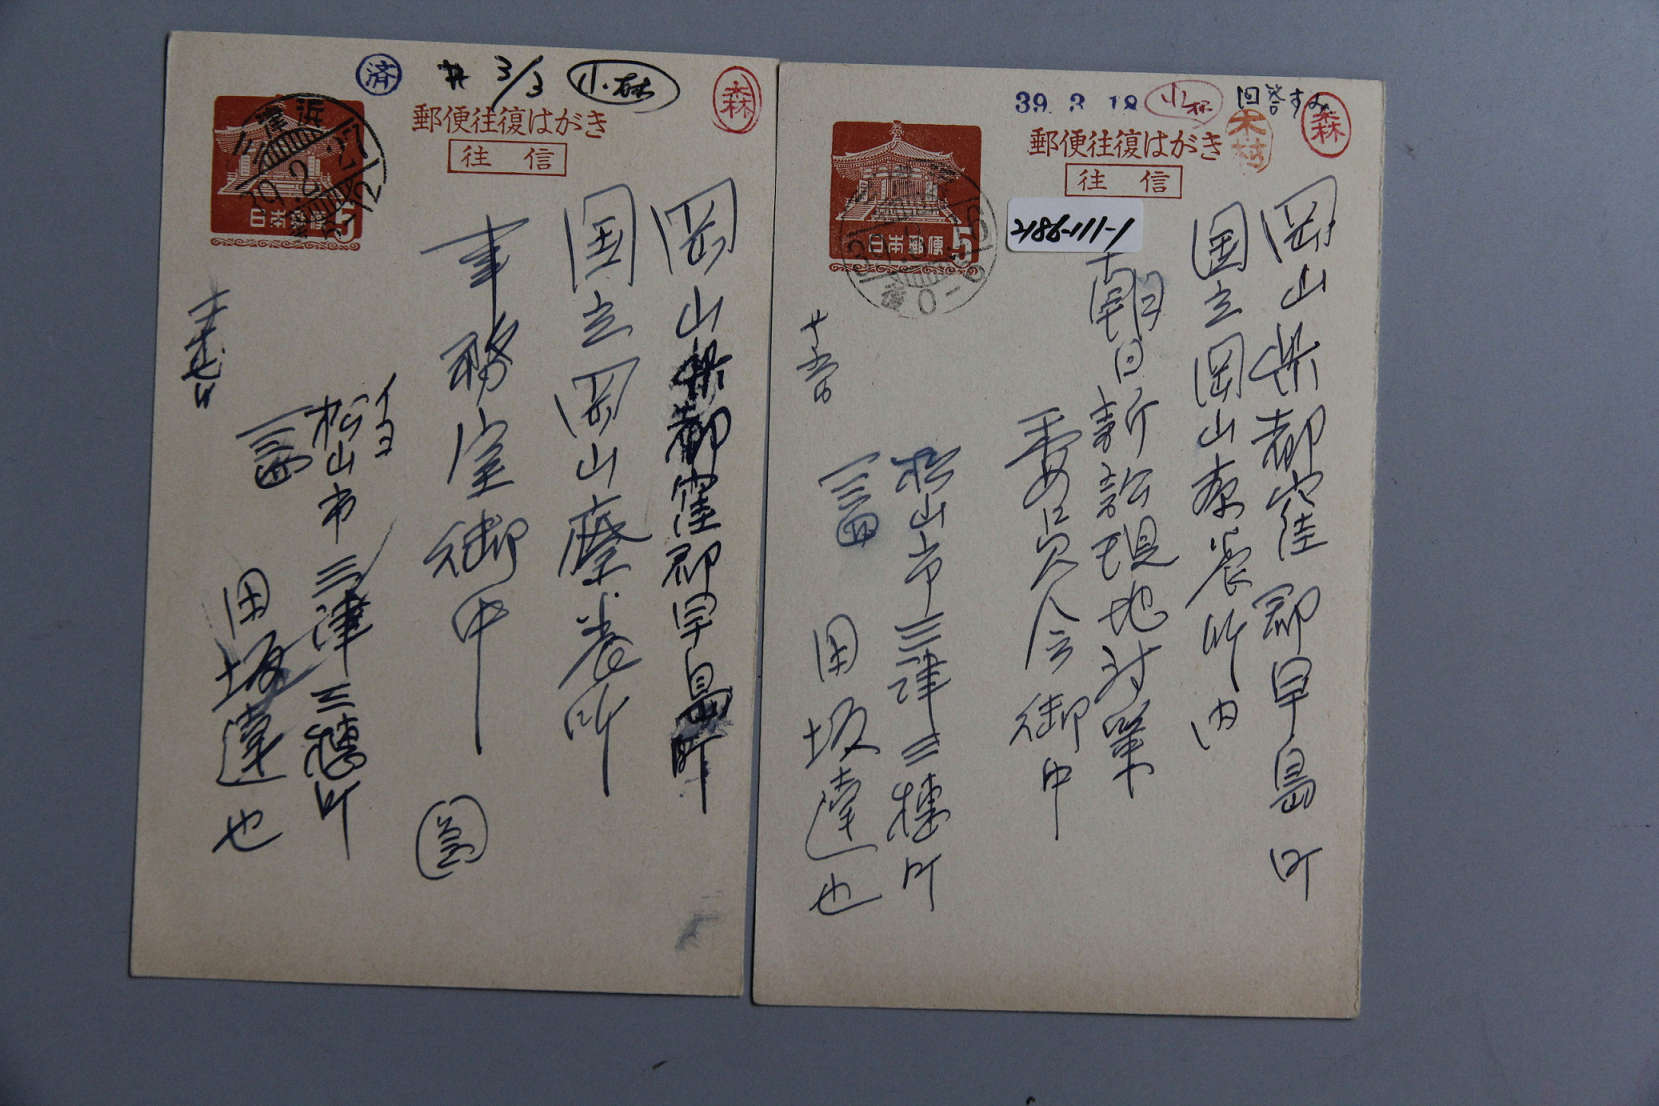 済
3/3
小林
森
郵便往復はがき
往信
三津浜
日本郵便 5
岡山県都窪郡早島町
国立岡山療養所
事務室御中
イヨ
松山市三津三穂町
田坂達也
39. 3. 18
小林
回答すみ
木村
森
郵便往復はがき
往信
日本郵便 5
2186-111-1
岡山県都窪郡早島町
国立岡山療養所内
朝日訴訟現地対策
委員会御中
松山市三津三穂町
田坂達也